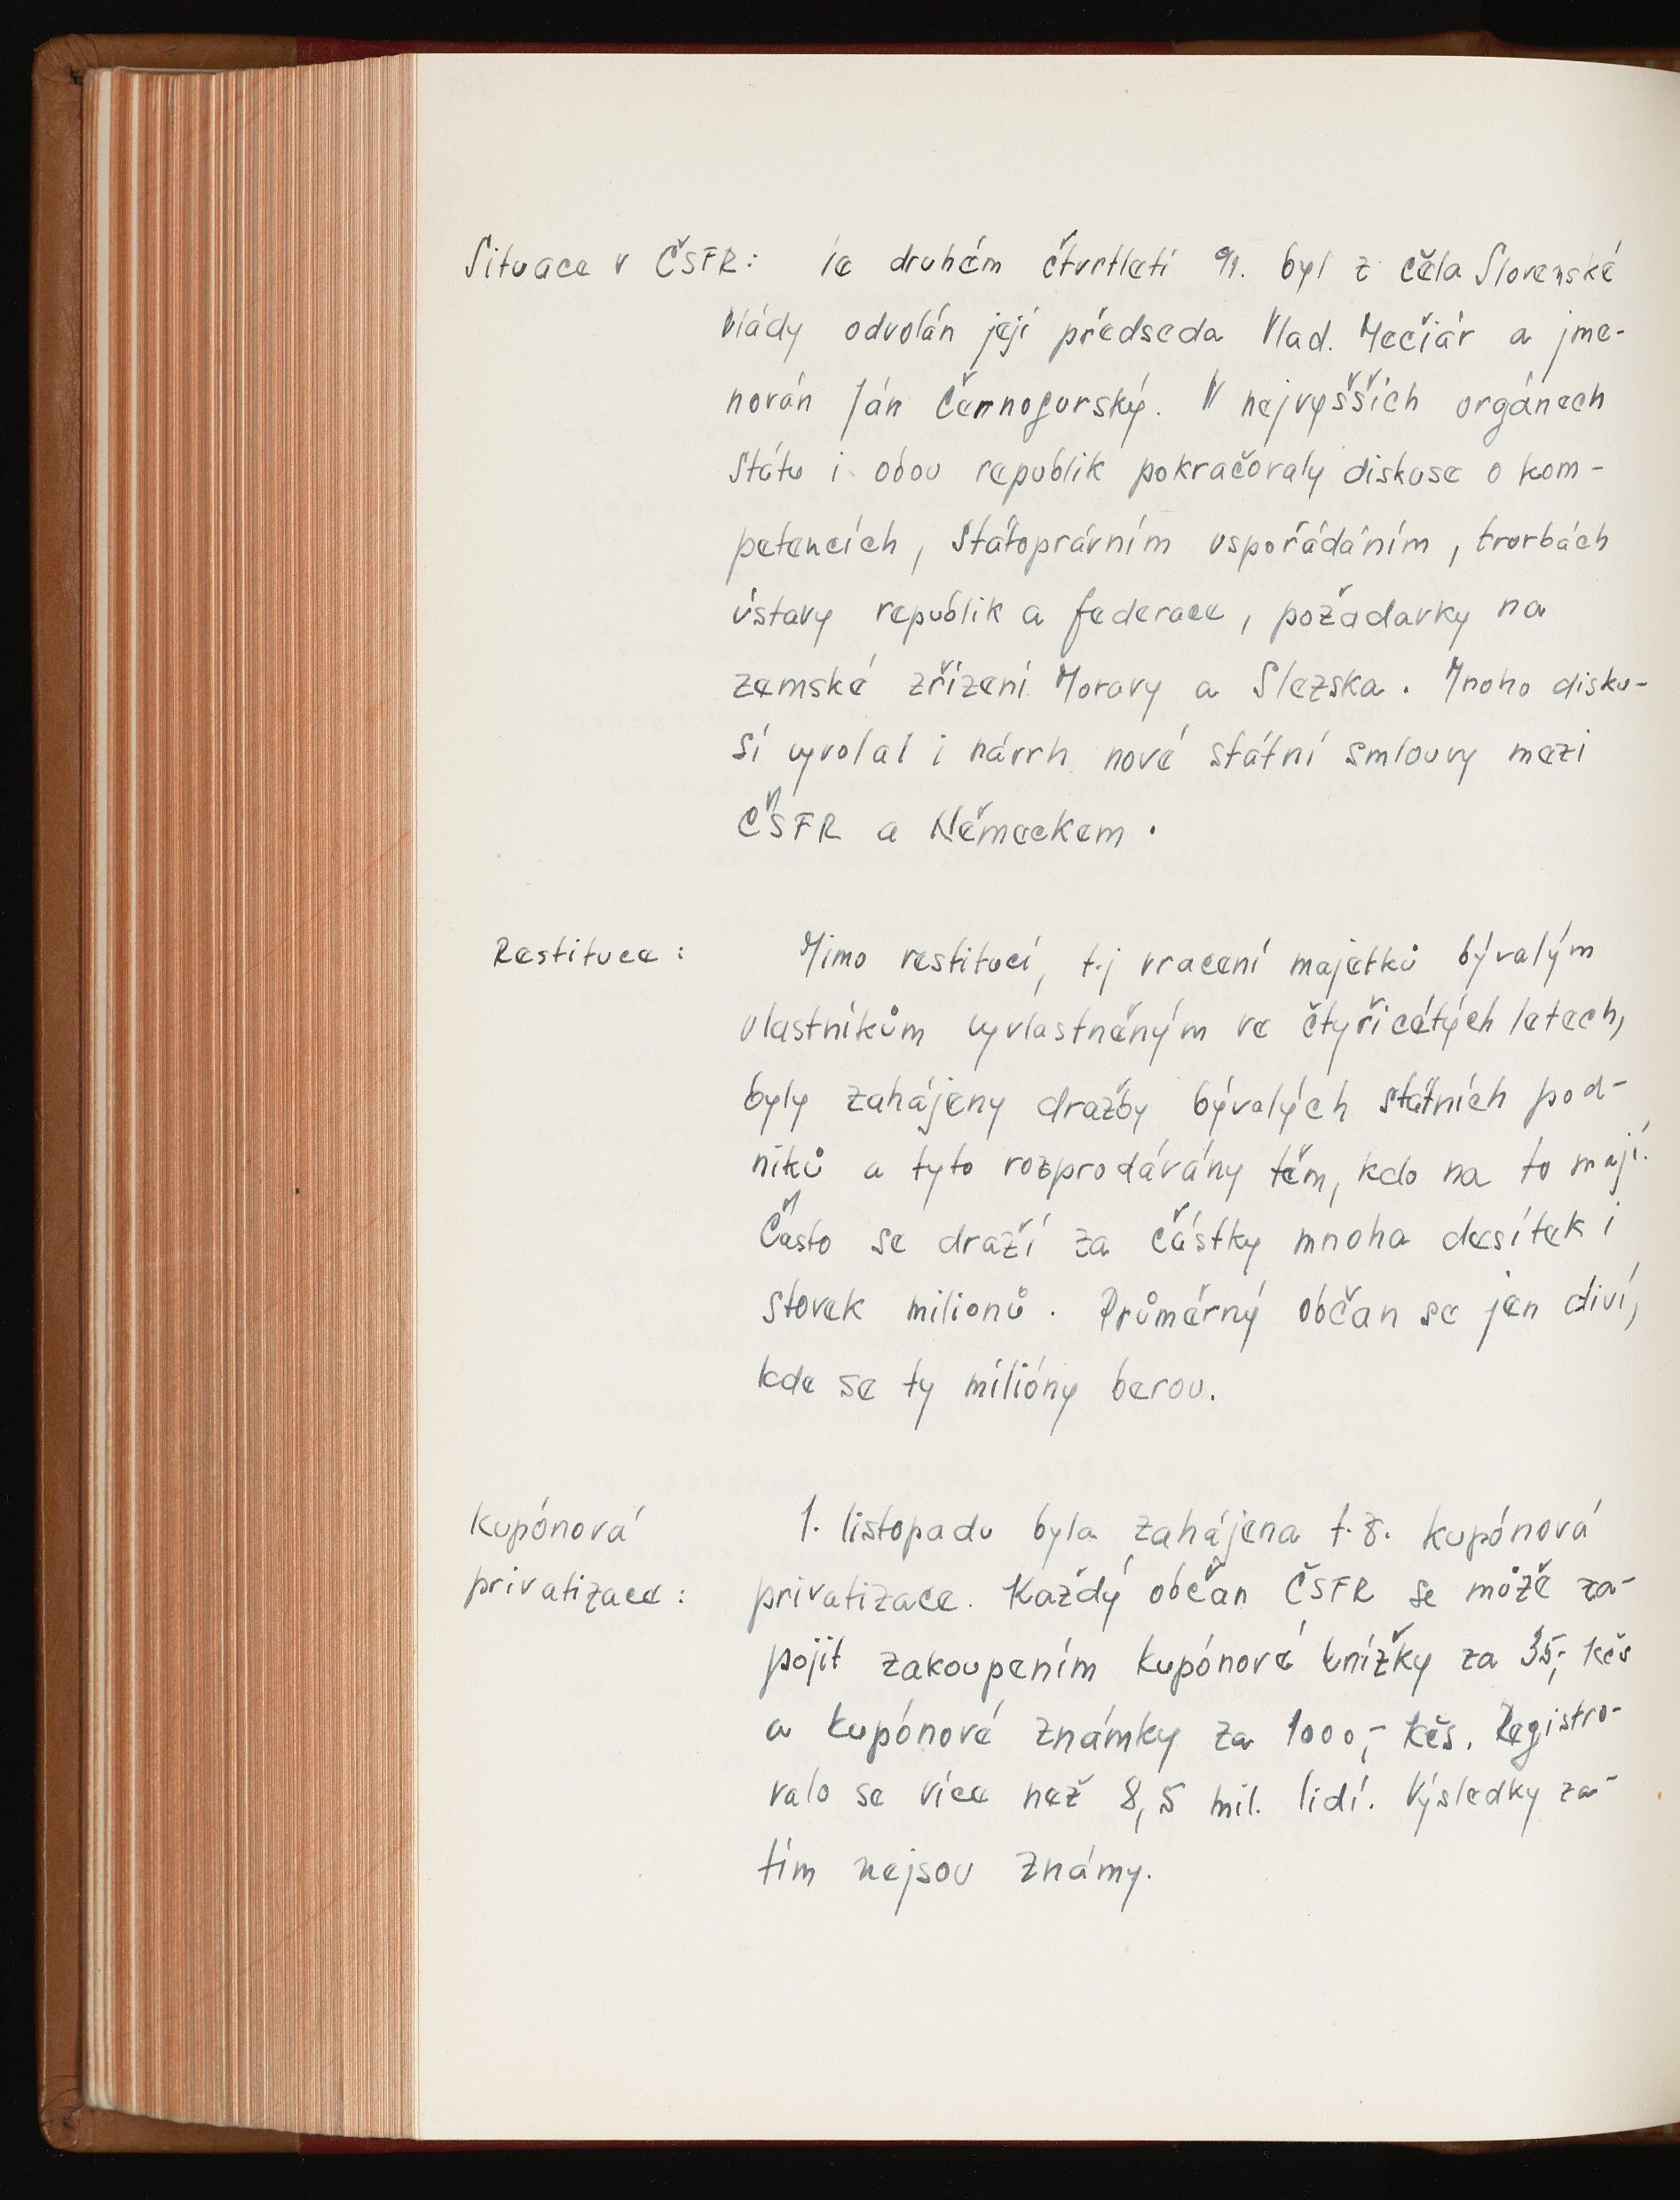 Situace v ČSFR: Ve druhém čtvrtletí 91. byl z čela Slovenské
vlády odvolán její předseda Vlad. Mečiár a jme-
nován Ján Černogurský. V nejvyšších orgánech
státu i obou republik pokračovaly diskuse o kom-
petencích, státoprávním uspořádáním, tvorbách
ústavy republik a federace, požadavky na
zemské zřízení Moravy a Slezska. Mnoho disku-
sí vyvolal i návrh nové státní smlouvy mezi
ČSFR a Německem.
Restituce: Mimo restitucí, t.j vracení majetků bývalým
vlastníkům vyvlastněným ve čtyřicétých letech,
byly zahájeny dražby bývalých státních pod-
niků a tyto rozprodávány těm, kdo na to mají.
Často se draží za částky mnoha desítek i
stovek milionů. Průměrný občan se jen diví,
kde se ty milióny berou.
Kupónová 1. listopadu byla zahájena t.z. kupónová
privatizace: privatizace. Každý občan ČSFR se může za-
pojit zakoupením kupónové knížky za 35,- Kčs
a kupónové známky za 1000,- Kčs. Registro-
valo se více než 8,5 mil. lidí. Výsledky za-
tím nejsou známy.